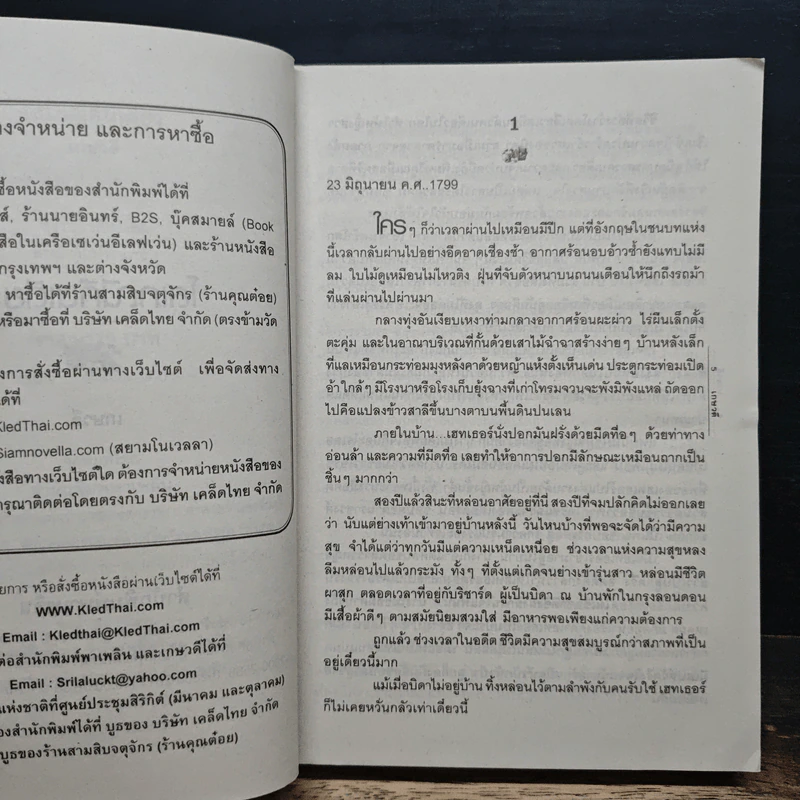 งจำหน่าย และการหาซื้อ
ซื้อหนังสือของสำนักพิมพ์ได้ที่
ส์, ร้านนายอินทร์, B2S, บุ๊คสมายล์ (Book
สือในเครือเซเว่นอีเลฟเว่น) และร้านหนังสือ
กรุงเทพฯ และต่างจังหวัด
หาซื้อได้ที่ร้านสามสิบจตุจักร (ร้านคุณต๋อย)
หรือมาซื้อที่ บริษัท เคล็ดไทย จำกัด (ตรงข้ามวัด
งการสั่งซื้อผ่านทางเว็บไซต์ เพื่อจัดส่งทาง
ด้ที่
KledThai.com
Siamnovella.com (สยามโนเวลลา)
สือทางเว็บไซต์ใด ต้องการจำหน่ายหนังสือของ
กรุณาติดต่อโดยตรงกับ บริษัท เคล็ดไทย จำกัด
ยการ หรือสั่งซื้อหนังสือผ่านเว็บไซต์ได้ที่
WWW.KledThai.com
Email : Kledthai@KledThai.com
ต่อสำนักพิมพ์พาเพลิน และเกษวดีได้ที่
Email : Srilaluckt@yahoo.com
แห่งชาติที่ศูนย์ประชุมสิริกิต์ (มีนาคม และตุลาคม)
องสำนักพิมพ์ได้ที่ บูธของ บริษัท เคล็ดไทย จำกัด
บูธของร้านสามสิบจตุจักร (ร้านคุณต๋อย)
1
23 มิถุนายน ค.ศ..1799
ใครๆ ก็ว่าเวลาผ่านไปเหมือนมีปีก แต่ที่อังกฤษในชนบทแห่ง
นี้เวลากลับผ่านไปอย่างอืดอาดเชื่องช้า อากาศร้อนอบอ้าวซ้ำยังแทบไม่มี
ลม ใบไม้ดูเหมือนไม่ไหวติง ฝุ่นที่จับตัวหนาบนถนนเตือนให้นึกถึงรถม้า
ที่แล่นผ่านไปผ่านมา
กลางทุ่งอันเงียบเหงาท่ามกลางอากาศร้อนผะผ่าว ไร่ผืนเล็กตั้ง
ตะคุ่ม และในอาณาบริเวณที่กั้นด้วยเสาไม้ฉำฉาสร้างง่ายๆ บ้านหลังเล็ก
ที่แลเหมือนกระท่อมมุงหลังคาด้วยหญ้าแห้งตั้งเห็นเด่น ประตูกระท่อมเปิด
อ้า ใกล้ๆ มีโรงนาหรือโรงเก็บยุ้งฉางที่เก่าโทรมจวนจะพังมิพังแหล่ ถัดออก
ไปคือแปลงข้าวสาลีขึ้นบางตาบนพื้นดินปนเลน
ภายในบ้าน...เฮทเธอร์นั่งปอกมันฝรั่งด้วยมีดทื่อๆ ด้วยท่าทาง
อ่อนล้า และความที่มีดทื่อ เลยทำให้อาการปอกมีลักษณะเหมือนถากเป็น
ชิ้นๆ มากกว่า
สองปีแล้วสินะที่หล่อนอาศัยอยู่ที่นี่ สองปีที่จมปลักคิดไม่ออกเลย
ว่า นับแต่ย่างเท้าเข้ามาอยู่บ้านหลังนี้ วันไหนบ้างที่พอจะจัดได้ว่ามีความ
สุข จำได้แต่ว่าทุกวันมีแต่ความเหน็ดเหนื่อย ช่วงเวลาแห่งความสุขหลง
ลืมหล่นไปแล้วกระมัง ทั้งๆ ที่ตั้งแต่เกิดจนย่างเข้ารุ่นสาว หล่อนมีชีวิต
ผาสุก ตลอดเวลาที่อยู่กับริชาร์ด ผู้เป็นบิดา ณ บ้านพักในกรุงลอนดอน
มีเสื้อผ้าดีๆ ตามสมัยนิยมสวมใส่ มีอาหารพอเพียงแก่ความต้องการ
ถูกแล้ว ช่วงเวลาในอดีต ชีวิตมีความสุขสมบูรณ์กว่าสภาพที่เป็น
อยู่เดี๋ยวนี้มาก
แม้เมื่อบิดาไม่อยู่บ้าน ทิ้งหล่อนไว้ตามลำพังกับคนรับใช้ เฮทเธอร์
ก็ไม่เคยหวั่นกลัวเท่าเดี๋ยวนี้
5
เกษวดี